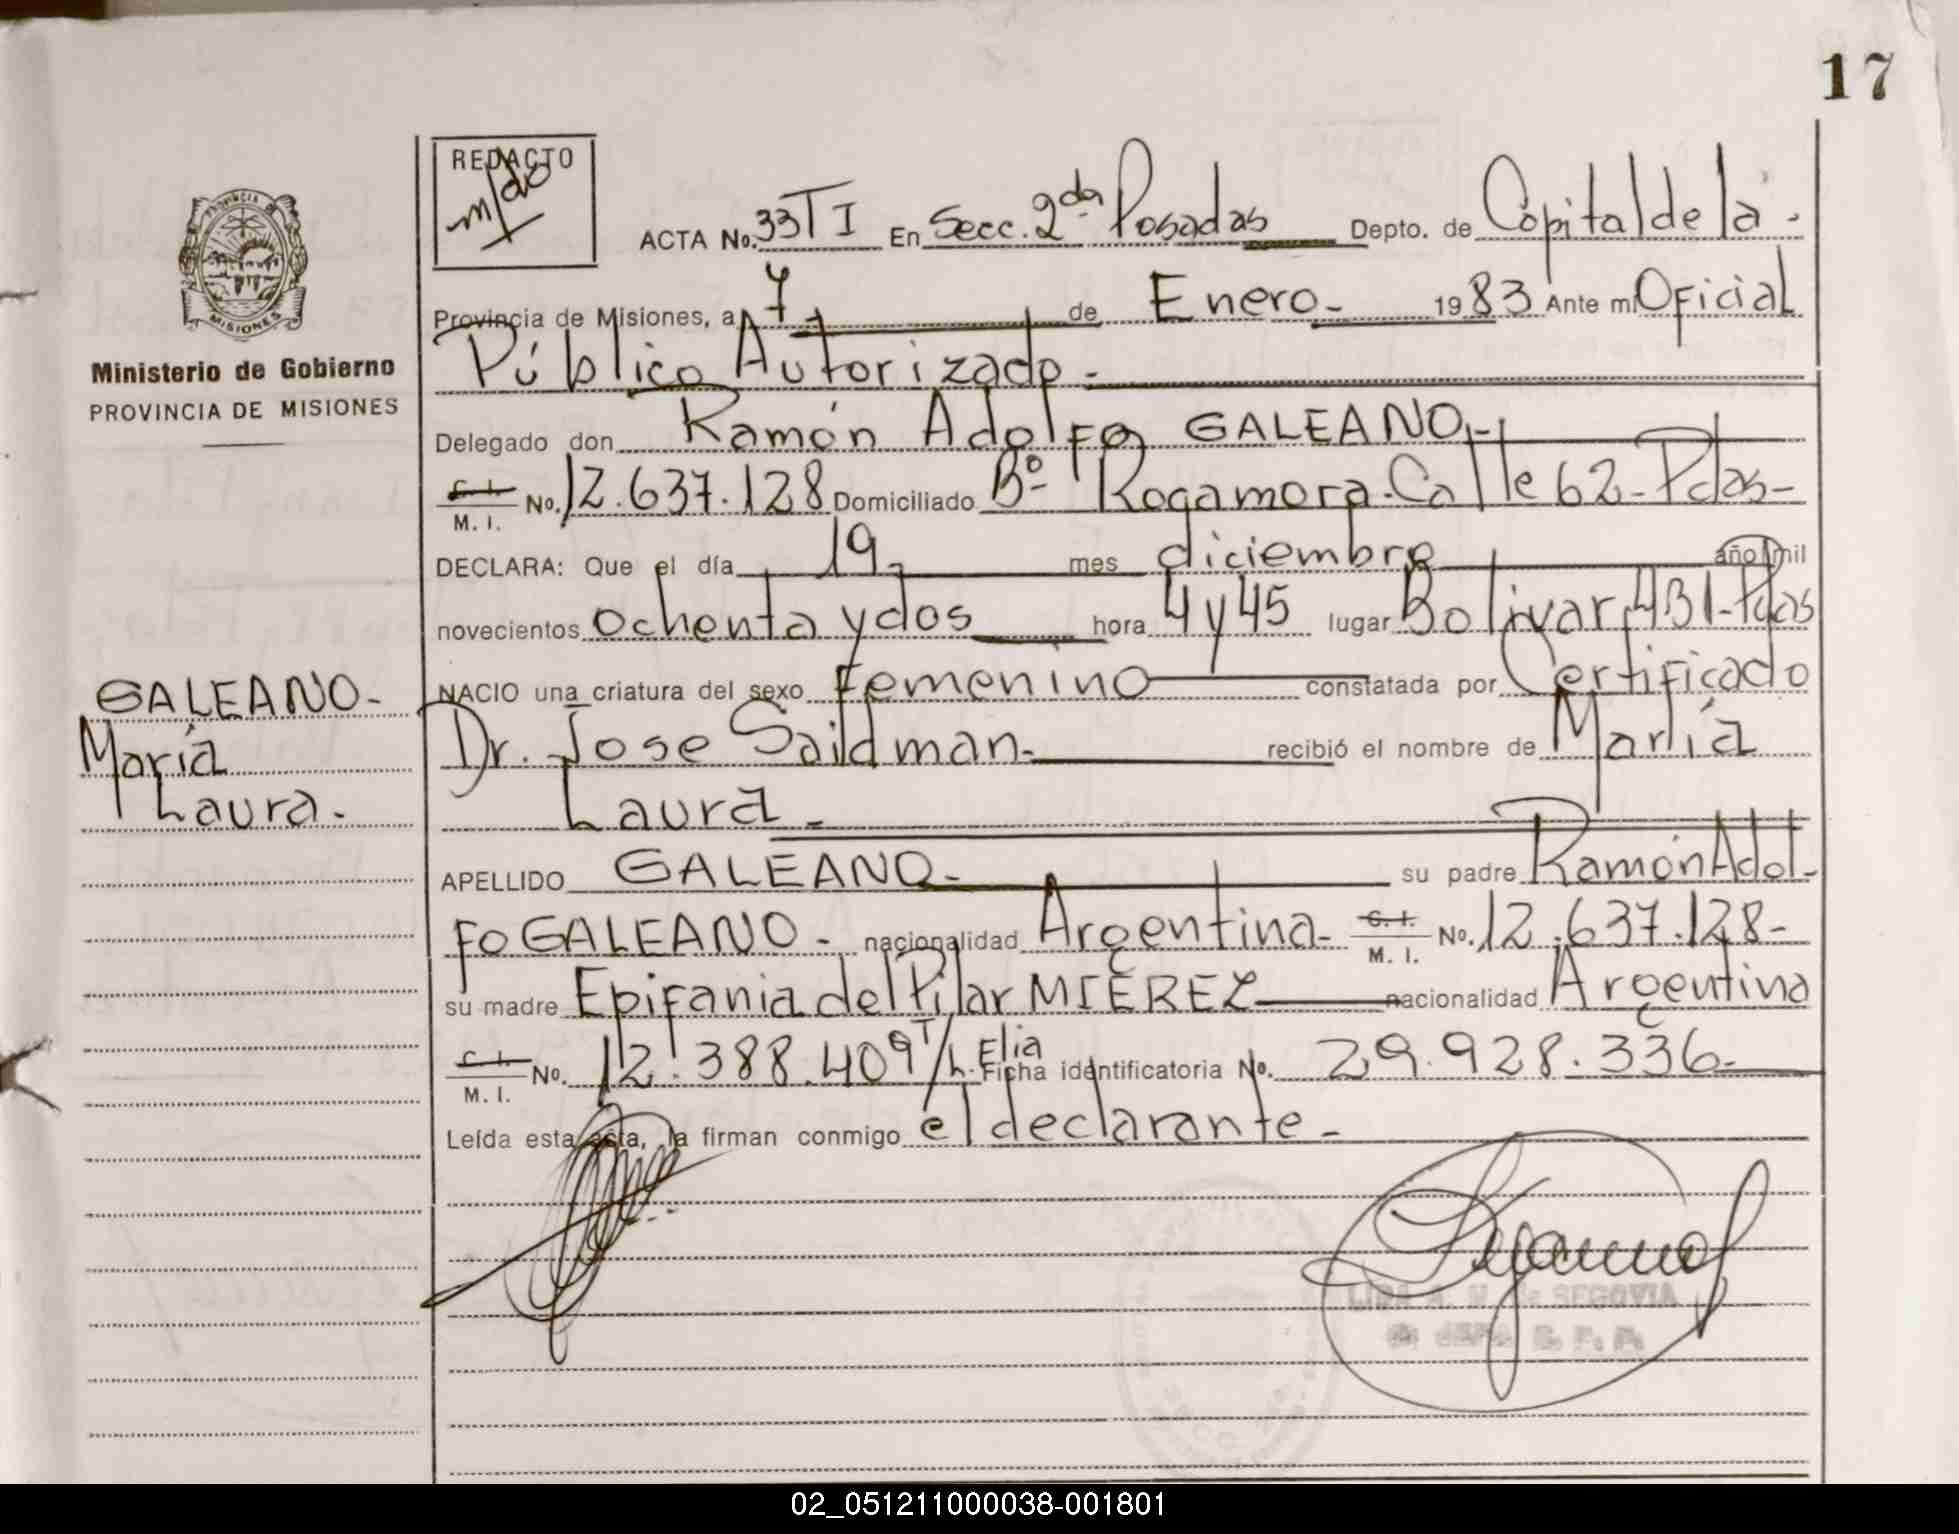 17
REDACTO
m/do
ACTA No. 33 T I En Secc. 2da Posadas Depto. de Capital de la -
PROVINCIA DE
MISIONES
Provincia de Misiones, a 7 - de Enero - 1983 Ante mi Oficial
Ministerio de Gobierno
PROVINCIA DE MISIONES
Público Autorizado -
Delegado don Ramón Adolfo GALEANO -
C. I.
M. I. No. 12.637.128 Domiciliado Bº Rocamora - Calle 62 - Pdas -
DECLARA: Que el día 19 - mes diciembre año mil
novecientos ochenta y dos hora 4 y 45 lugar Bolivar 431 - Pdas
NACIO una criatura del sexo femenino constatada por Certificado
GALEANO -
María
Laura. -
Dr. Jose Saidman - recibió el nombre de María
Laura -
APELLIDO GALEANO - su padre Ramón Adol-
fo GALEANO - nacionalidad Argentina - C. I.
M. I. No. 12.637.128 -
su madre Epifania del Pilar MIEREZ nacionalidad Argentina
C. I.
M. I. No. 12.388.409 T/h. Elia Ficha identificatoria No. 29.928.336 -
Leída esta acta, la firman conmigo el declarante -
LIDA A. M. de SEGOVIA
JEFA
02_051211000038-001801